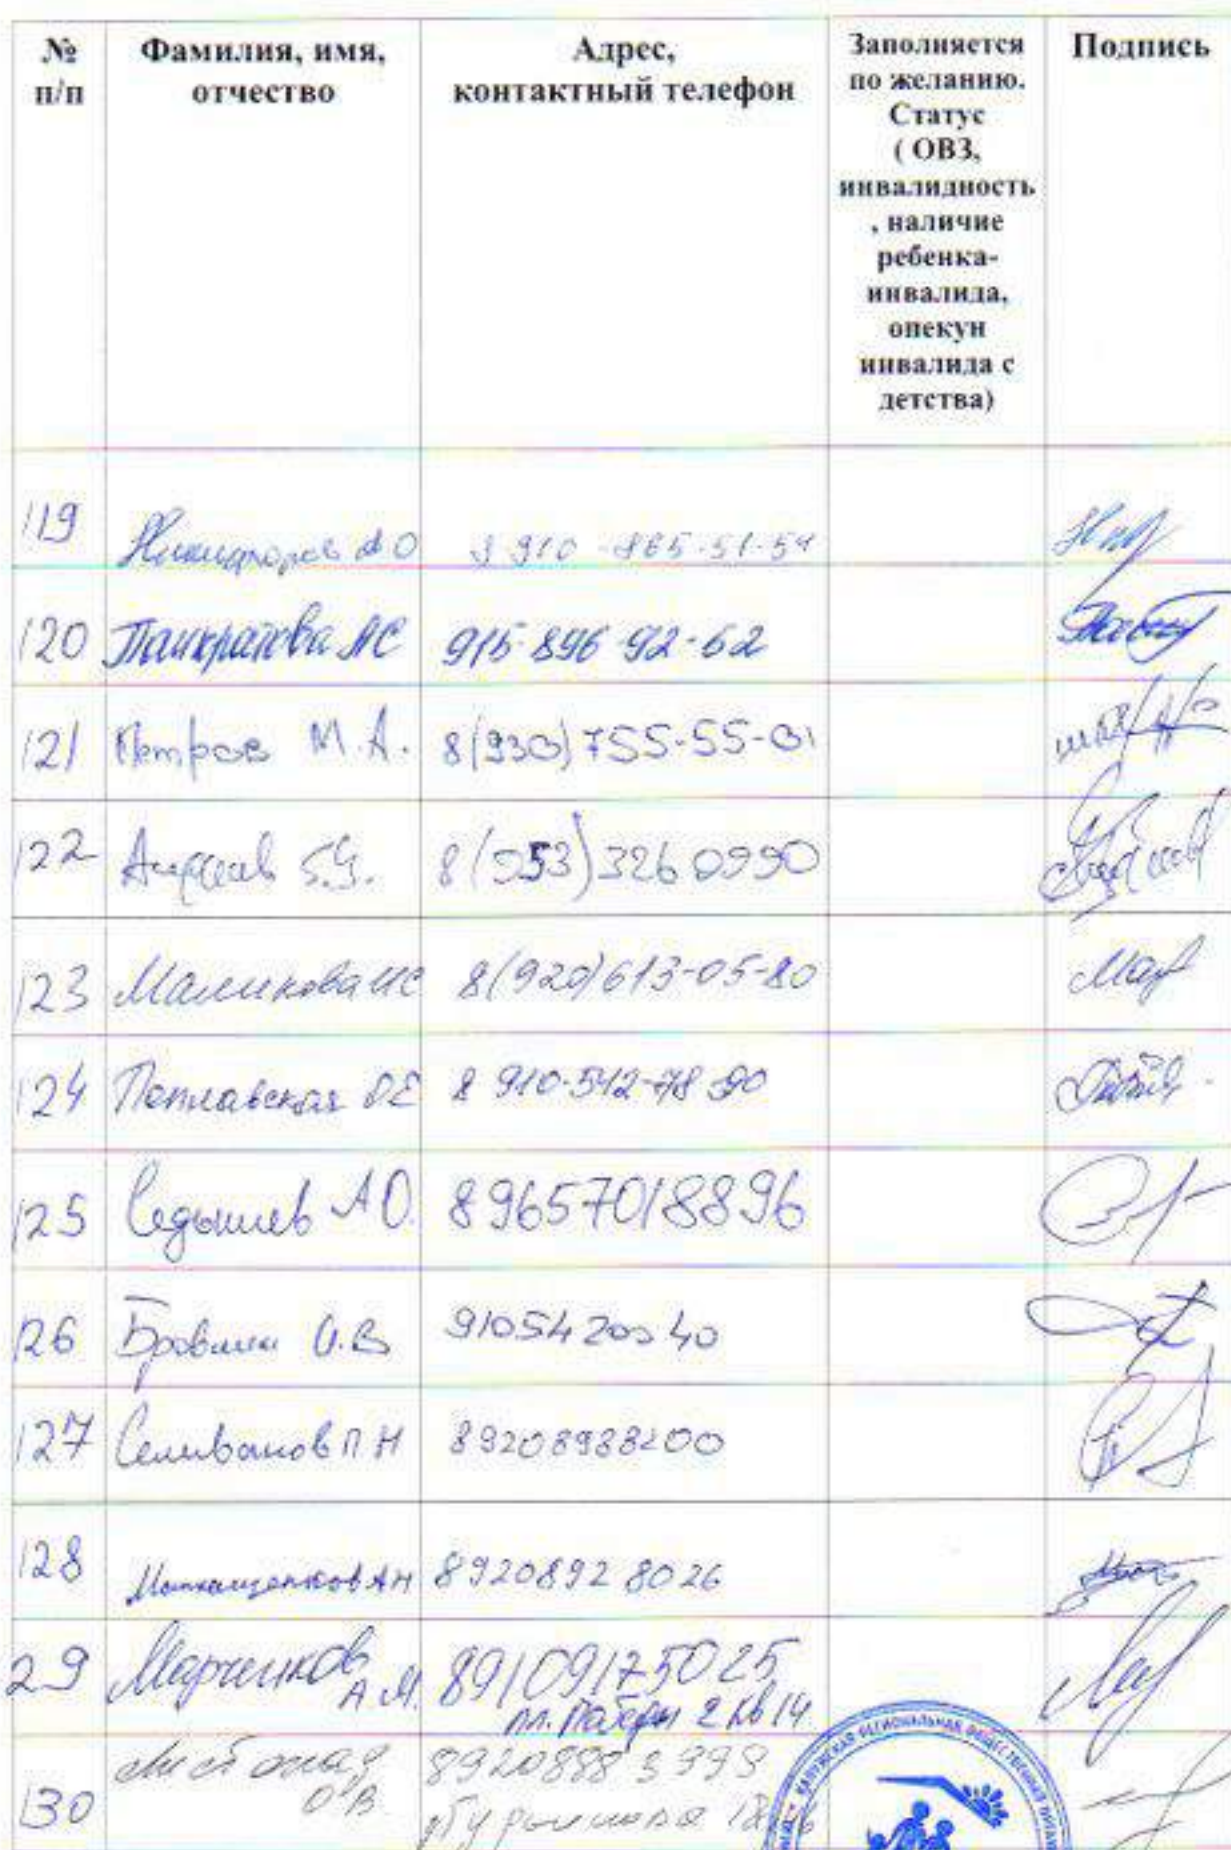 № п/п
Фамилия, имя, отчество
Адрес, контактный телефон
Заполняется по желанию. Статус ( ОВЗ, инвалидность , наличие ребенка-инвалида, опекун инвалида с детства)
Подпись
119 Никифоров 910 -865-51-54
120 Панкратова АС 915-896-92-62
121 Петров М.А. 8(930)755-55-01
122 8(953)3260990
123 Маликова ИС 8(920)613-05-80
124 Поплавская ОЕ 8 910-542-78-90
125 Седышев АО. 89657018896
126 О.В 9105420040
127 Селиванов П Н
128 АН 89208928026
29 Марченков А.М. 89109175025
2 кв 14
130 О.В.
КАЛУЖСКАЯ РЕГИОНАЛЬНАЯ ОБЩЕСТВЕННАЯ